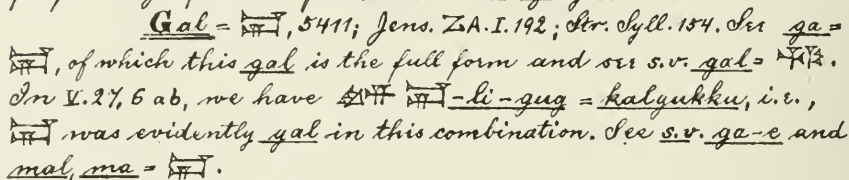 Gal = 𒂷, 5411; Jens. ZA. I. 192; Str. Syll. 154. See ga =
𒂷, of which this gal is the full form and see s.v. gal = 𒅅.
In V. 27, 6 ab, we have 𒅎 𒂷-li-gug = kalgukku, i.e.,
𒂷 was evidently gal in this combination. See s.v. ga-e and
mal, ma = 𒂷.